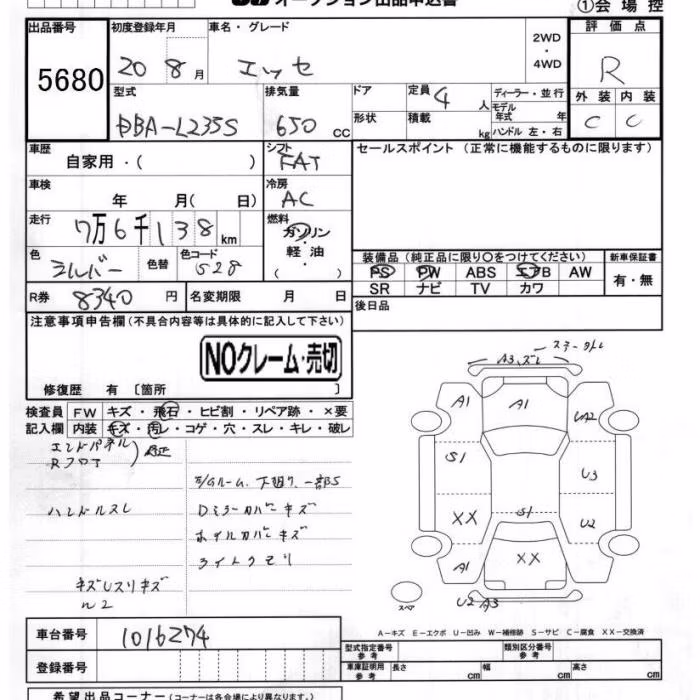 オークション出品申込書
①会場控
出品番号
5680
初度登録年月
20 8月
車名・グレード
エッセ
2WD
・
4WD
評価点
R
外装 内装
C C
型式
DBA-L235S
排気量
650 cc
ドア
形状
定員
4 人
積載
kg
ディーラー・並行
モデル年式 年
ハンドル 左・右
車歴
自家用・( )
シフト
FAT
セールスポイント (正常に機能するものに限ります)
車検
年 月( 日)
冷房
AC
走行
7万6千138km
燃料
ガソリン
・
軽油
( )
色
シルバー
色替
色コード
S28
装備品(純正品に限り〇をつけてください)
PS PW ABS エアB AW
SR ナビ TV カワ
新車保証書
有・無
R券
8340円
名変期限 月 日
後日品
注意事項申告欄(不具合内容等は具体的に記入して下さい)
NOクレーム・売切
修復歴 有〔箇所 〕
検査員
記入欄
FW キズ・飛石・ヒビ割・リペア跡・×要
内装 キズ・汚レ・コゲ・穴・スレ・キレ・破レ
エンドパネル
RフロT
ハンドルスレ
下廻り、一部S
Dミラーカバーキズ
ホイルカバーキズ
ライトクモリ
A3.ズレ
A1
A1
UA2
S1
U3
XX
S1
U2
A1
XX
U2 A3
スペア
A-キズ E-エクボ U-凹み W-補修跡 S-サビ C-腐食 XX-交換済
車台番号
1016274
登録番号
型式指定番号
参考
類別区分番号
参考
車庫証明用
参考
長さ cm
幅 cm
高さ cm
希望出品コーナー(コーナーは各会場により異なります。)